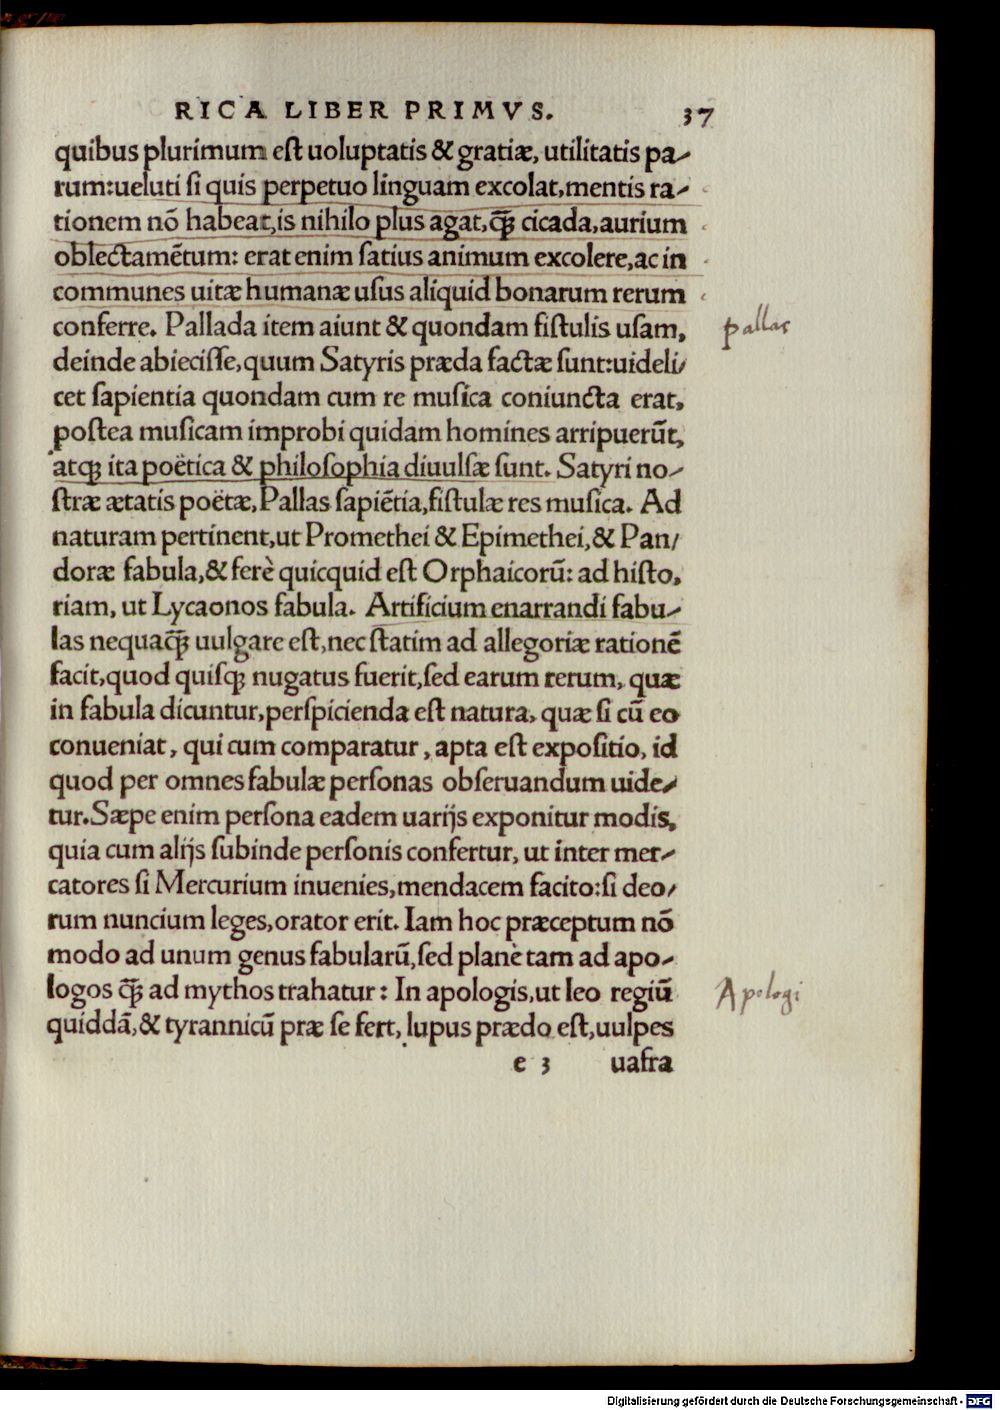 RICA LIBER PRIMVS. 37
quibus plurimum eſt uoluptatis & gratiæ, utilitatis pa-
rum:ueluti ſi quis perpetuo linguam excolat,mentis ra-
tionem nō habeat,is nihilo plus agat,q̃ꝫ cicada,aurium
oblectamētum: erat enim ſatius animum excolere,ac in
communes uitæ humanæ uſus aliquid bonarum rerum
conferre. Pallada item aiunt & quondam fiſtulis uſam,
Pallas
deinde abieciſſe,quum Satyris præda factæ ſunt:uideli/
cet ſapientia quondam cum re muſica coniuncta erat,
poſtea muſicam improbi quidam homines arripuerūt,
atqꝫ ita poëtica & philoſophia diuulſæ ſunt. Satyri no-
ſtræ ætatis poëtæ,Pallas ſapiētia,fiſtulæ res muſica. Ad
naturam pertinent,ut Promethei & Epimethei,& Pan/
doræ fabula,& ferè quicquid eſt Orphaicorū: ad hiſto,
riam, ut Lycaonos fabula. Artificium enarrandi fabu-
las nequaq̃ꝫ uulgare eſt,nec ſtatim ad allegoriæ rationē
facit,quod quiſqꝫ nugatus fuerit,ſed earum rerum, quæ
in fabula dicuntur,perſpicienda eſt natura, quæ ſi cū eo
conueniat, qui cum comparatur, apta eſt expoſitio, id
quod per omnes fabulæ perſonas obſeruandum uide-
tur.Sæpe enim perſona eadem uarijs exponitur modis,
quia cum alijs ſubinde perſonis confertur, ut inter mer-
catores ſi Mercurium inuenies,mendacem facito:ſi deo/
rum nuncium leges,orator erit. Iam hoc præceptum nō
modo ad unum genus fabularū,ſed planè tam ad apo-
logos q̃ꝫ ad mythos trahatur: In apologis,ut leo regiū
Apologi
quiddā,& tyrannicū præ ſe fert, lupus prædo eſt,uulpes
e 3 uafra
Digitalisierung gefördert durch die Deutsche Forschungsgemeinschaft - DFG